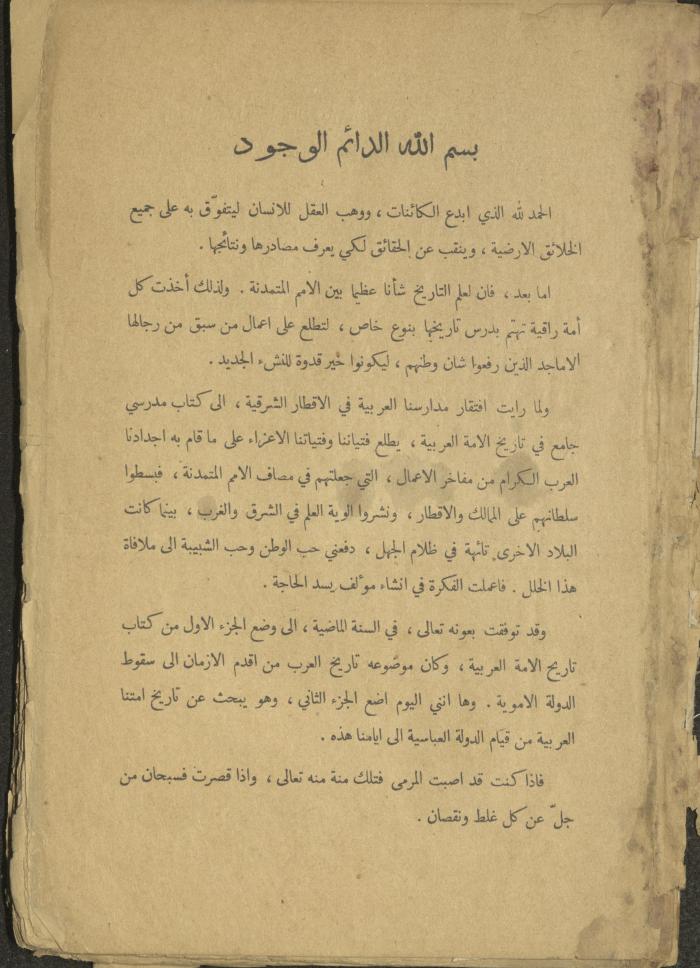 بسم الله الدائم الوجود
الحمد لله الذي ابدع الكائنات ، ووهب العقل للانسان ليتفوّق به على جميع
الخلائق الارضية ، وينقب عن الحقائق لكي يعرف مصادرها ونتائجها .
اما بعد ، فان لعلم التاريخ شأنا عظيما بين الامم المتمدنة . ولذلك أخذت كل
أمة راقية تهتم بدرس تاريخها بنوع خاص ، لتطلع على اعمال من سبق من رجالها
الاماجد الذين رفعوا شان وطنهم ، ليكونوا خير قدوة للنشء الجديد .
ولما رايت افتقار مدارسنا العربية في الاقطار الشرقية ، الى كتاب مدرسي
جامع في تاريخ الامة العربية ، يطلع فتياننا وفتياتنا الاعزاء على ما قام به اجدادنا
العرب الكرام من مفاخر الاعمال ، التي جعلتهم في مصاف الامم المتمدنة ، فبسطوا
سلطانهم على الممالك والاقطار ، ونشروا الوية العلم في الشرق والغرب ، بينما كانت
البلاد الاخرى تائهة في ظلام الجهل ، دفعني حب الوطن وحب الشبيبة الى ملافاة
هذا الخلل . فاعملت الفكرة في انشاء مؤلف يسد الحاجة .
وقد توفقت بعونه تعالى ، في السنة الماضية ، الى وضع الجزء الاول من كتاب
تاريخ الامة العربية ، وكان موضوعه تاريخ العرب من اقدم الازمان الى سقوط
الدولة الاموية . وها انني اليوم اضع الجزء الثاني ، وهو يبحث عن تاريخ امتنا
العربية من قيام الدولة العباسية الى ايامنا هذه .
فاذا كنت قد اصبت المرمى فتلك منة منه تعالى ، واذا قصرت فسبحان من
جلّ عن كل غلط ونقصان .